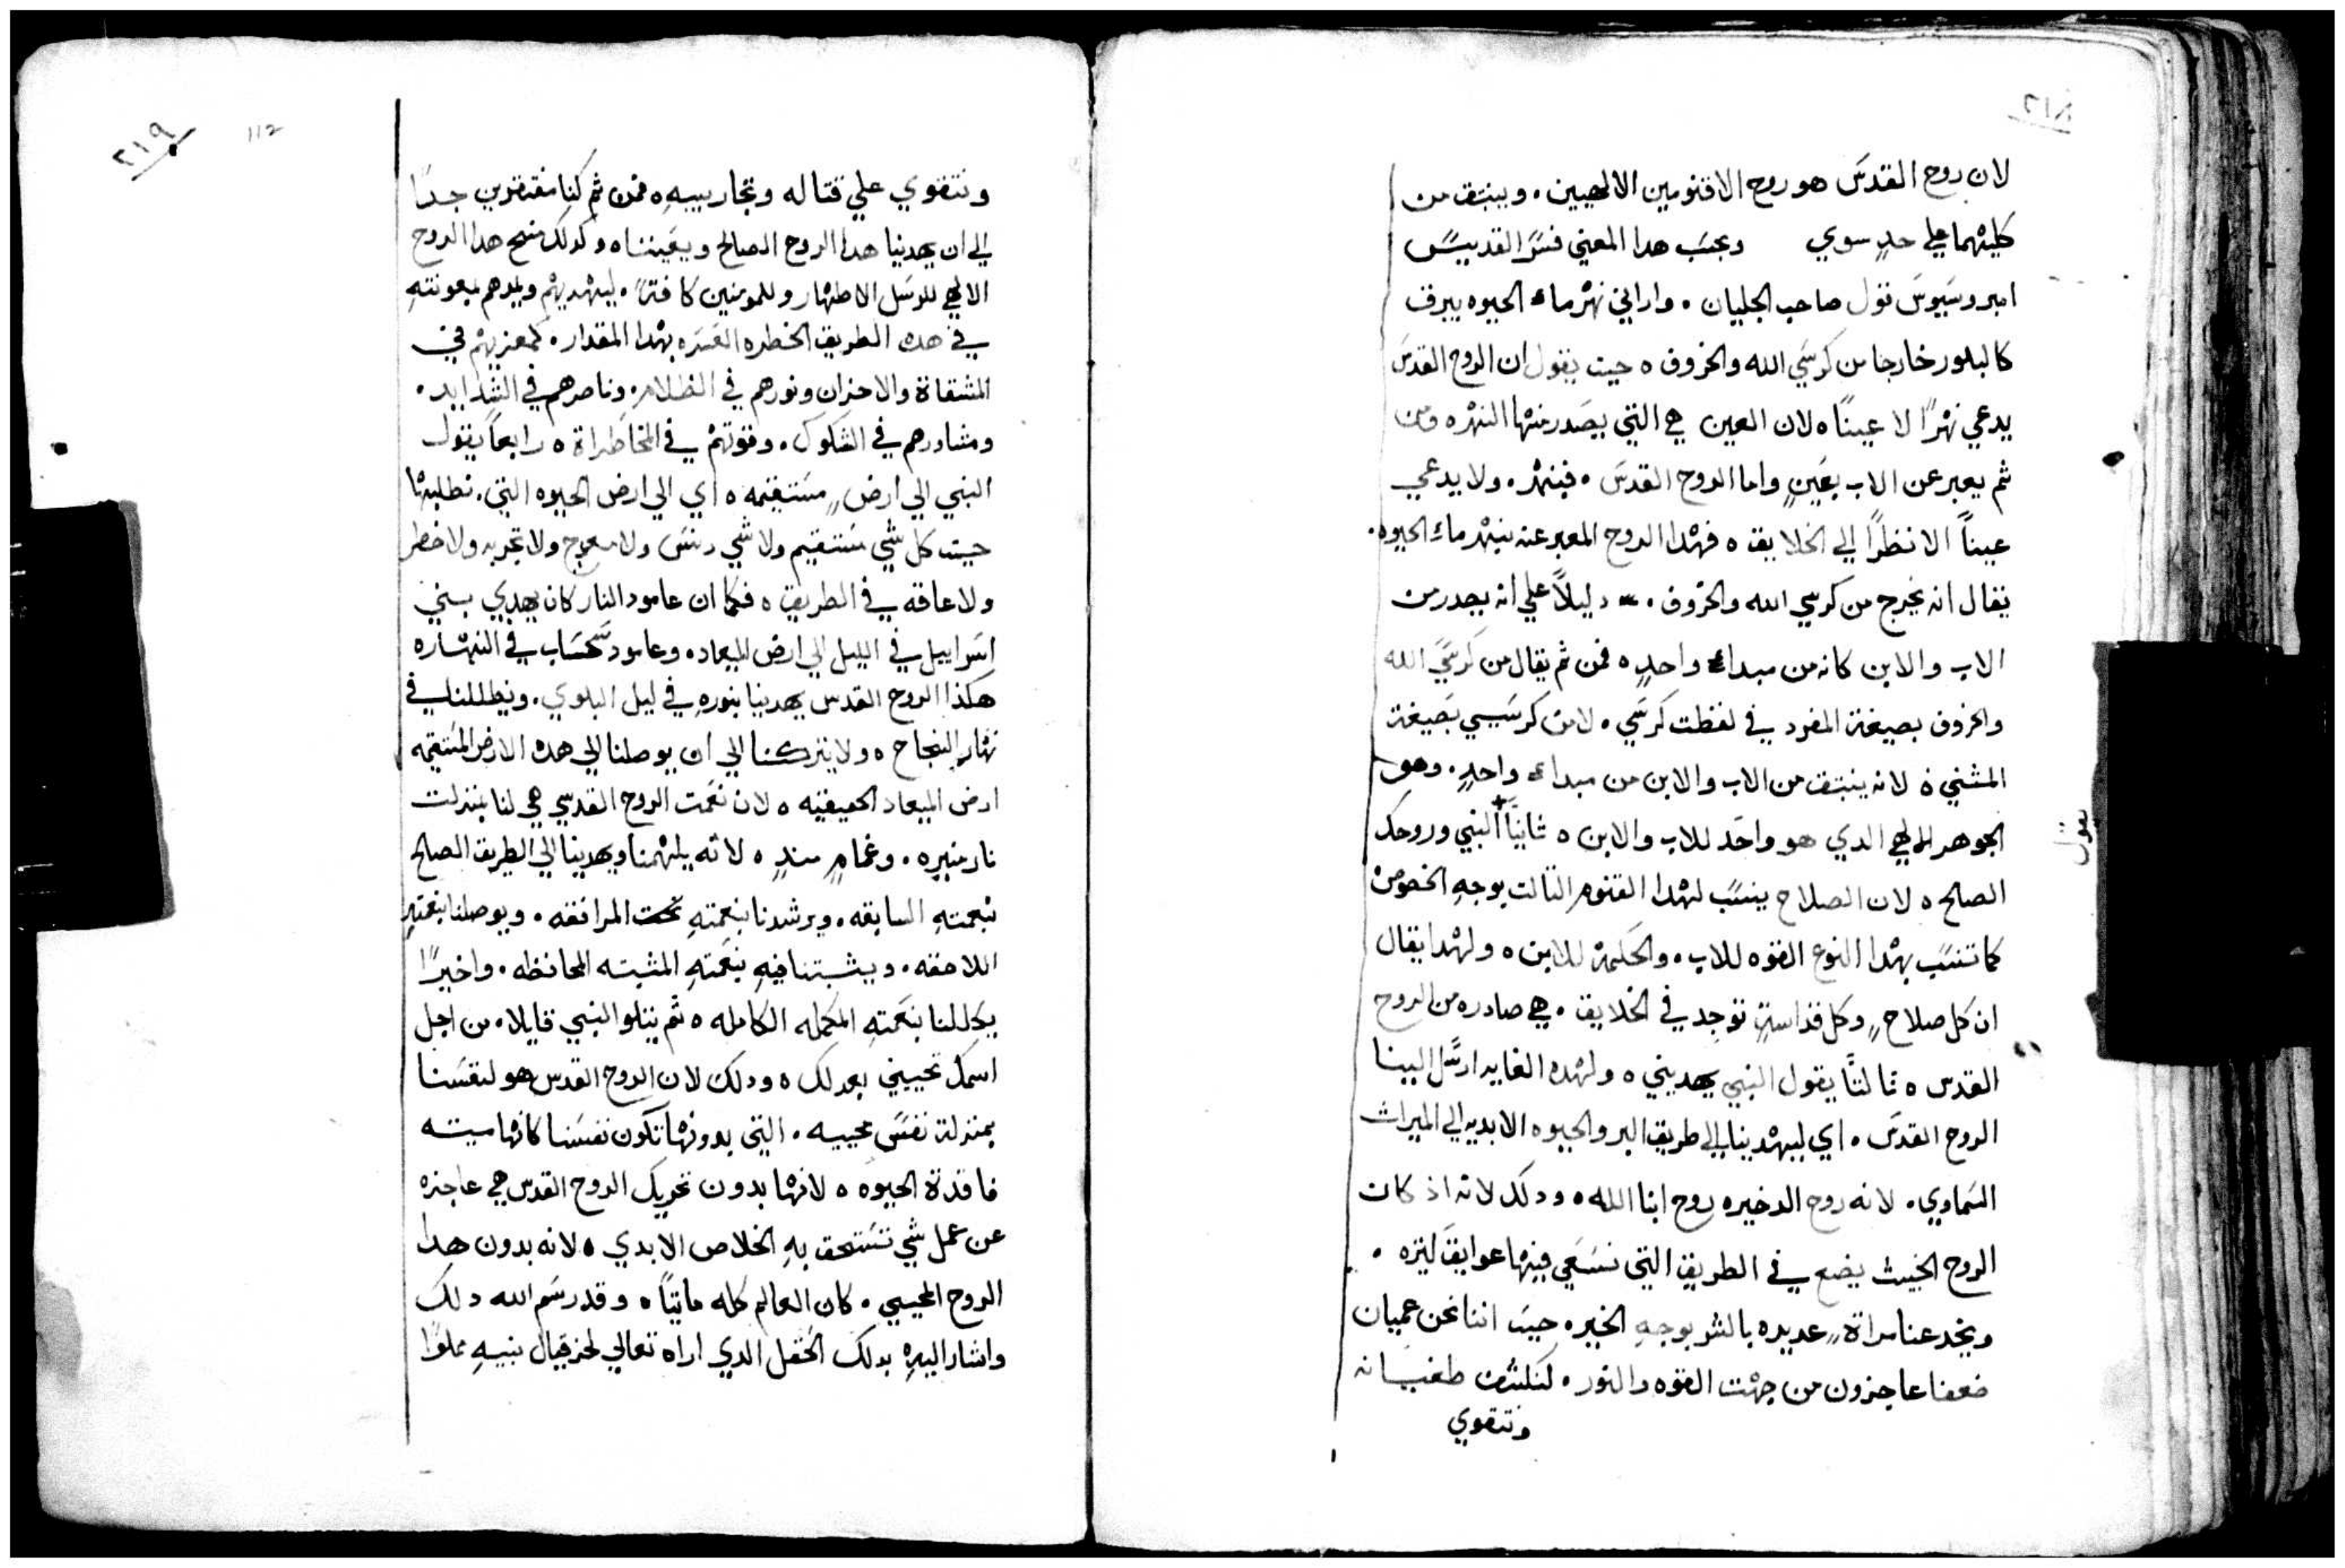 ٢١٨
لان روح القدس هو روح الاقنومين الالهيين . وينبتق من
كليهما علي حدٍ سوي وبحسَب هدا المعني فسَّر القديسَ
امبروسيوسَ قول صاحب الجليان . واراني نهْر ماء الحيوه يبرق
كالبلور خارجا من كرسَي الله والخروف ه حيت يقول ان الروح القدسَ
يدعي نهْراً لا عيناً ه لان العين هي التي يصَدر منهْا النهْر ه ومن
ثم يعبر عن الاب بعَينٍ واما الروح القدسَ . فبنهْر . ولا يدعي
عيناً الا نظراً الي الخلايق ه فهْدا الروح المعبر عنه بنهْر ماء الحيوه .
يقال انه يخرج من كرسي الله والخروف . دليلاً علي انه يصدر من
الاب والابن كانه من مبداء واحدٍ ه فمن ثم يقال من كرسَي الله
والخروف بصيغة المفرد في لفظت كرسَي . لا من كرسَيي بصَيغة
المثني ه لانه ينبتق من الاب والابن من مبداء واحدٍ . وهو
الجوهر الالهي الدي هو واحد للاب والابن ه ثانياً + النبي وروحك
يقول
الصالح ه لان الصلاح ينسَب لهْدا القنوم التالت بوجهِ الخصوص
كما تنسَب بهْدا النوع القوه للاب . والحكمة للابن ه ولهْدا يقال
ان كل صلاحٍ وكل قداسةٍ توجد في الخلايق . هي صادره من الروح
القدس ه تالتاً يقول النبي يهديني ه ولهْده الغايه ارسَل الينا
الروح القدسَ . اي ليهْدينا الي طريق البر والحيوه الابديه الي الميراث
السَماوي . لانه روح الدخيره روح ابنا الله ه ودلك لانه اذ كان
الروح الخبيث يضع في الطريق التي نسَعَي فيهْا عوايق كتيره .
ويخدعنا مراةٍ عديده بالشر بوجهِ الخير ه حيت اننا نحن عميان
ضعفا عاجزون من جهْت القوه والنور . لنكشف طغيانه
ونتقوي
٢١٩
112
ونتقوي علي قتاله وتجاريبهِ ه فمن ثم كنا مفتقرين جداً
الي ان يهدينا هدا الروح الصالح ويعَيننا ه وكدلك منح هدا الروح
الالهي للرسَل الاطهْار وللمومنين كافتاً . ليهْديهْم ويمدهم بمعونتهِ
في هده الطريق الخطره العَسَره بهْدا المقدار . كمعزيهْم في
المشقاة والاحزان ونورهم في الظلام . وناصرهم في الشدايد .
ومشاورهم في الشكوك . وقوتهْم في المخاطراة ه رابعاً يقول
النبي الي ارضٍ مسَتقيمه ه اي الي ارض الحيوه التي نطلبهْا
حيت كل شي مسَتقيم ولا شي دنسَ ولا معوج ولا تجربه ولا خطر
ولا عاقه في الطريق ه فكما ان عامود النار كان يهدي بني
اسَراييل في الليل الي ارض الميعاد . وعامود سَحَاب في النهْار ه
هكذا الروح القدس يهدينا بنورهِ في ليل البلوي . ويظللنا في
نهْار النجاح ه ولا يتركنا الي ان يوصلنا الي هده الارض المسَتقيمه
ارض الميعاد الحقيقيه ه لان نعَمت الروح القدسي هي لنا بمنزلت
نار منيره . وغمامٍ مندٍ ه لانه يلهْمنا ويهدينا الي الطريق الصالح
بنعمتهِ السابقه . ويرشدنا بنعَمتهِ تحت المرافقه . ويوصلنا بنعَمتهِ
اللاحقه . ويثبتنا فيهِ بنعَمتهِ المثبته المحافظه . واخيراً
يكللنا بنعَمتهِ المكمله الكامله ه ثم يتلو النبي قايلا . من اجل
اسمك تحييني بعدلك ه ودلك لان الروح القدس هو لنفسَنا
بمنزلة نفسَ محييه . التي بدونهْا تكون نفسَنا كانهْا ميته
فاقدة الحيوه ه لانهْا بدون تحريك الروح القدس هي عاجزه
عن عمل شي تسَتحق بهِ الخلاص الابدي ه لانه بدون هدا
الروح المحيي . كان العالم كله مايتاً . وقد رسَم الله دلك
واشار اليهِ بدلك الحَقل الدي اراه تعالي لحزقيال نبيهِ مملوًا